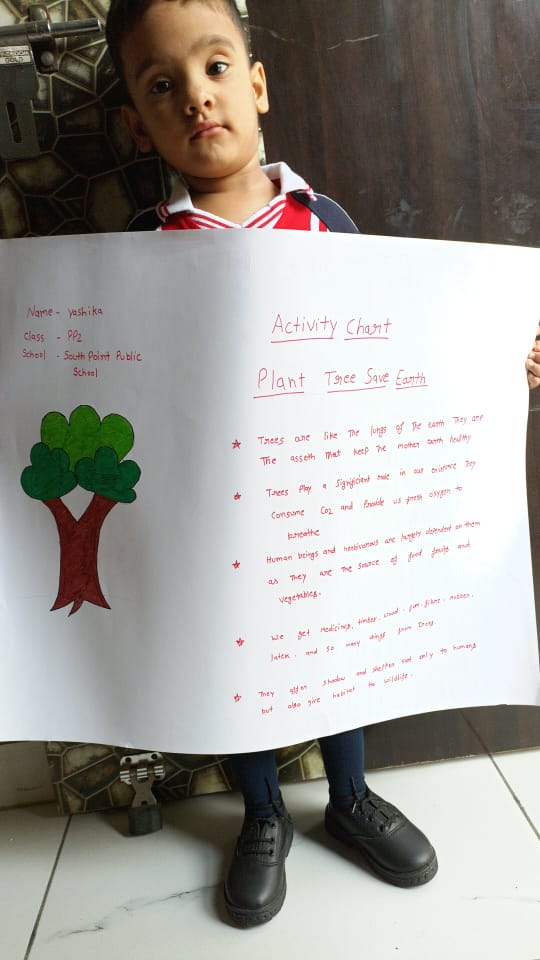 Name - Yashika
Class - PP2
School - South Point Public
School
Activity Chart
Plant Tree Save Earth
Trees are like The lungs of The earth They are
The asseth That keep The mother earth healthy
Trees Play a Significant role in our existence They
Consume Co2 and Provide us fresh oxygen to
breathe
Human beings and herbivorous are largely dependent on them
as They are The source of food fruits and
vegetables.
We get medicines, timber, wood, gum, fibre, rubber,
latex, and so many things from Trees.
They offer shadow and shelter not only to humans
but also give habitat to wildlife.
GOLD